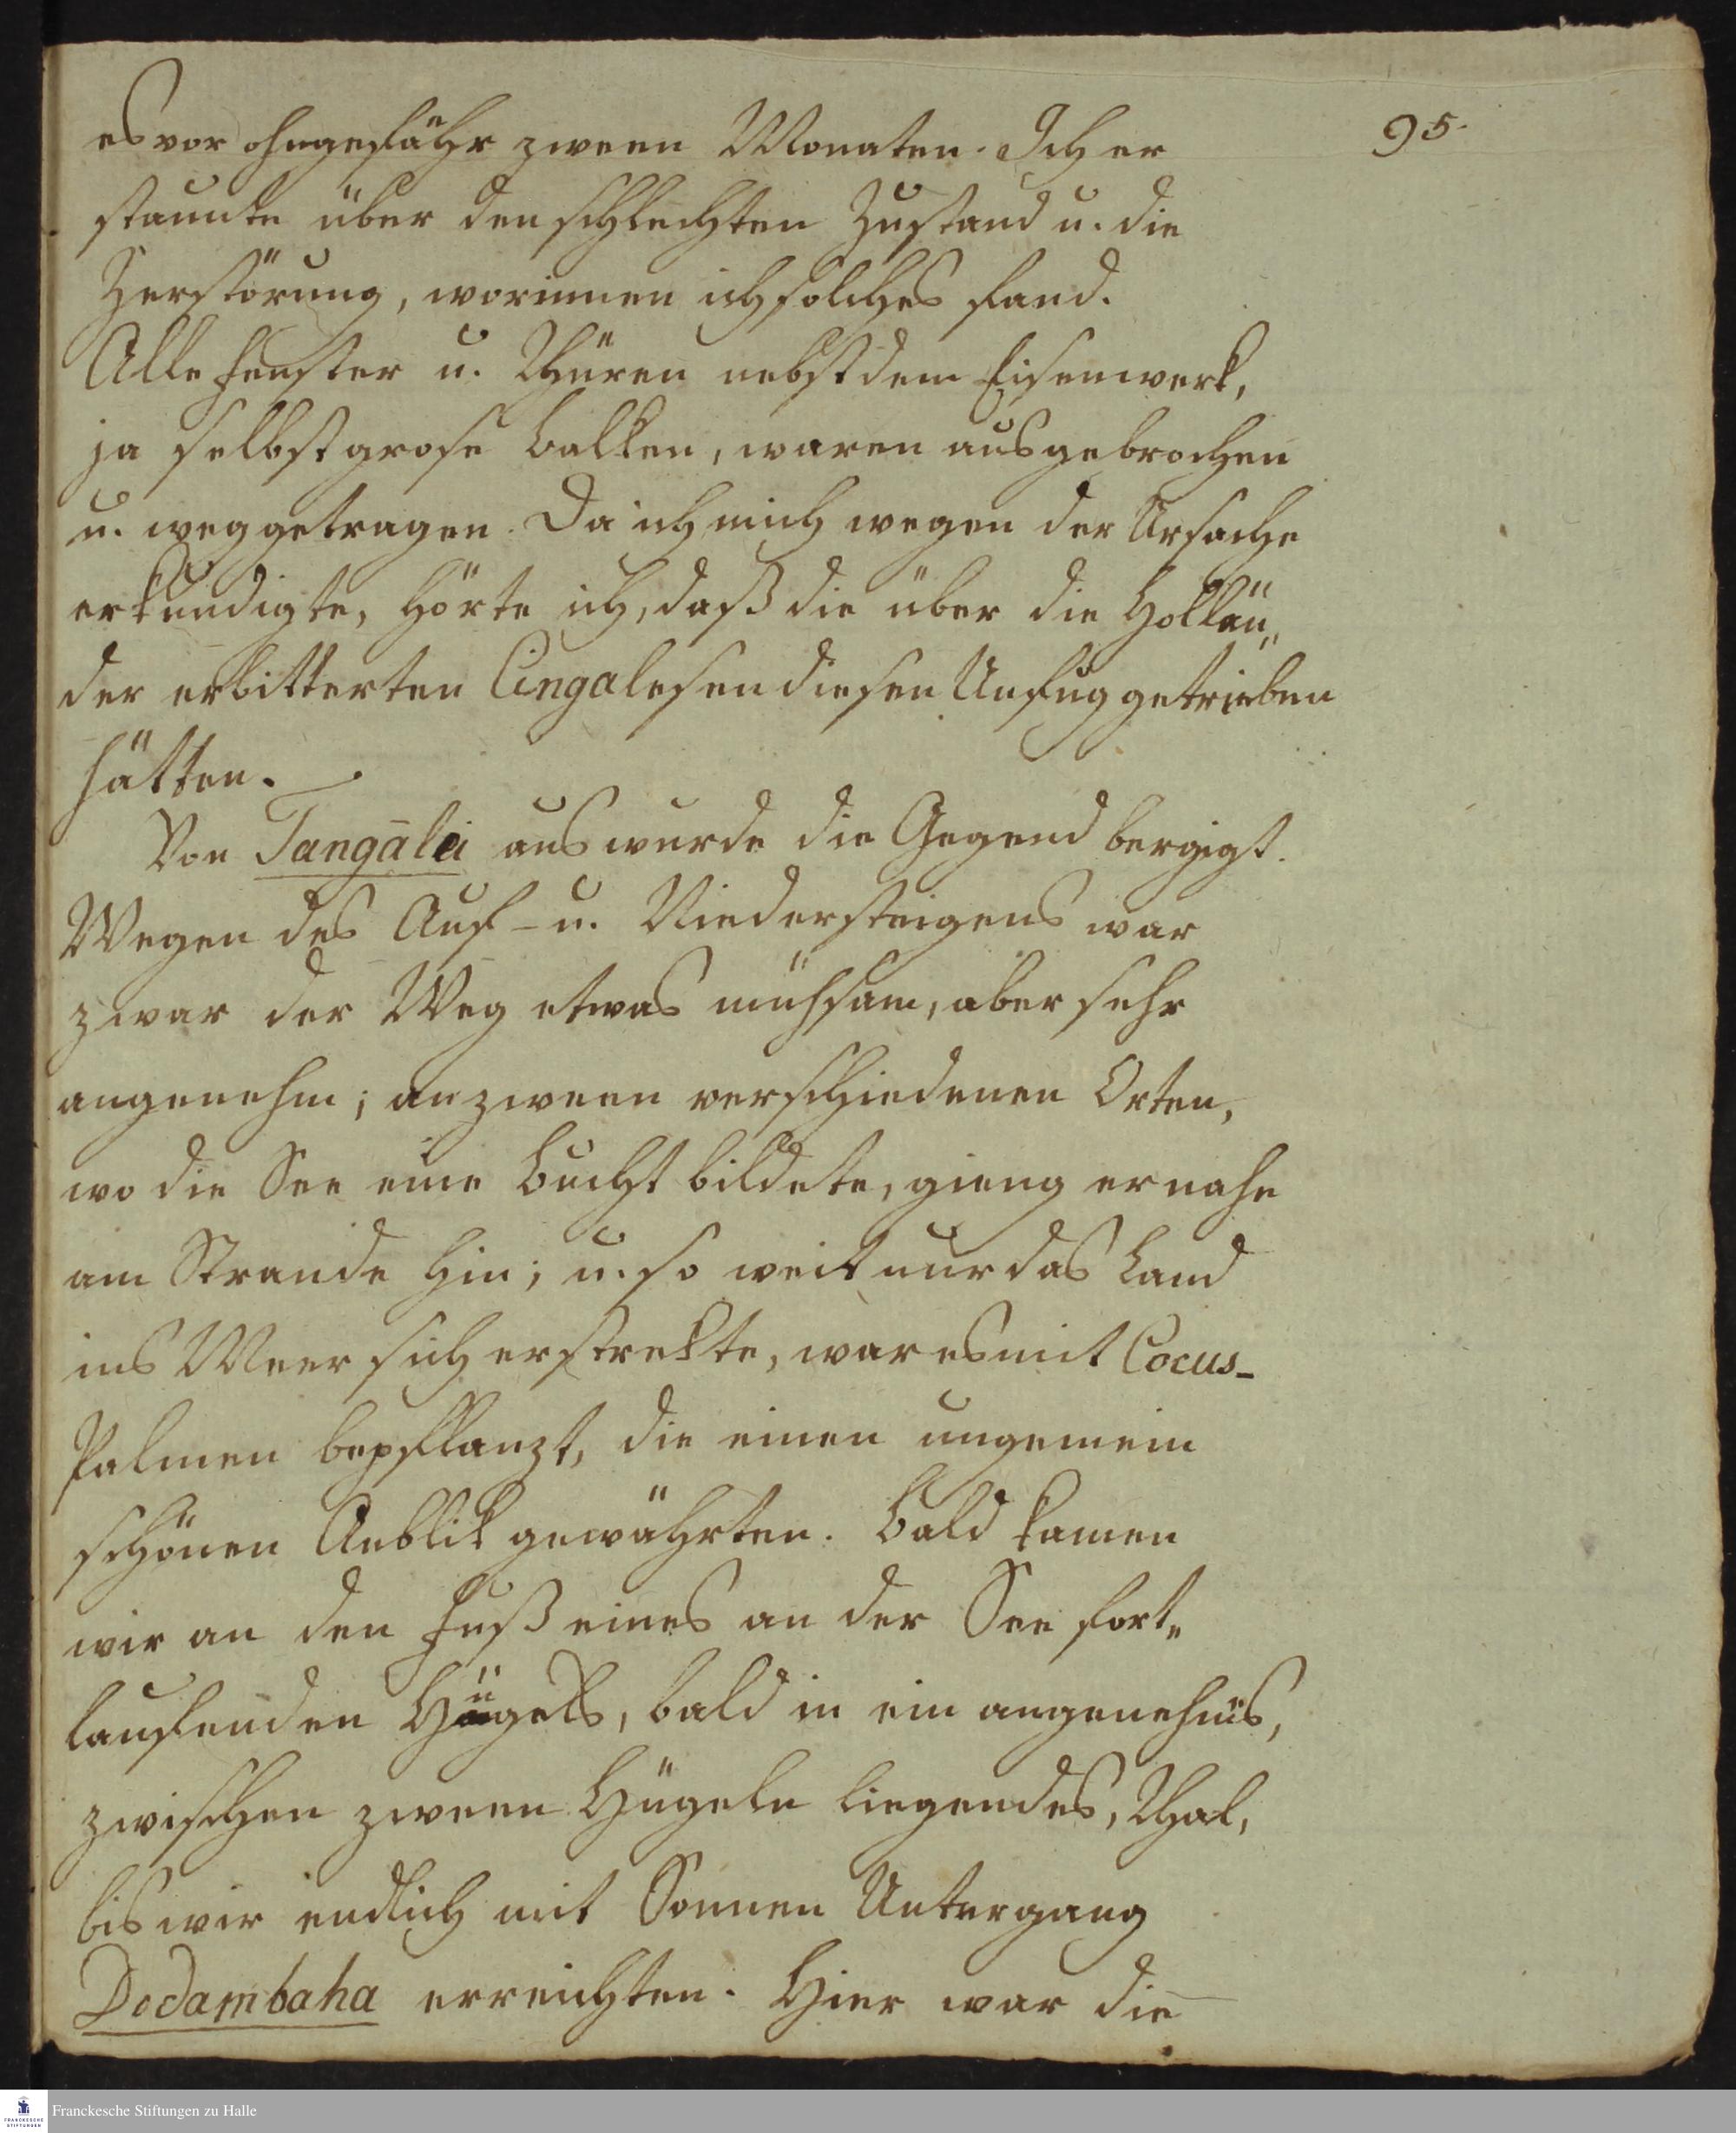 95.
es vor ohngefähr zween Monaten. Ich er
staunte über den schlechten Zustand u. die
Zerstörung, worinnen ich solches fand.
Alle Fenster u. Thüren nebst dem Eisenwerk,
ja selbst grose Balken, waren ausgebrochen
u. weggetragen. Da ich mich wegen der Ursache
erkundigte, hörte ich, daß die über die Hollän„
der erbitterten Cingalesen diesen Unfug getrieben
hätten.
Von Tangālei aus wurde die Gegend bergigt.
Wegen des Auf- u. Niedersteigens war
zwar der Weg etwas mühsam, aber sehr
angenehm; an zween verschiedenen Orten,
wo die See eine Bucht bildete, gieng er nahe
am Strande hin; u. so weit nur das Land
ins Meer sich erstrekte, war es mit Cocus-
Palmen bepflanzt, die einen ungemein
schönen Anblik gewährten. Bald kamen
wir an den Fuß eines an der See fort„
laufenden Hügels, bald in ein angenehms,
zwischen zween Hügeln liegendes, Thal,
bis wir endlich mit Sonnen Untergang
Dodambaha erreichten. Hier war die
Franckesche Stiftungen zu Halle
FRANCKESCHE
STIFTUNGEN